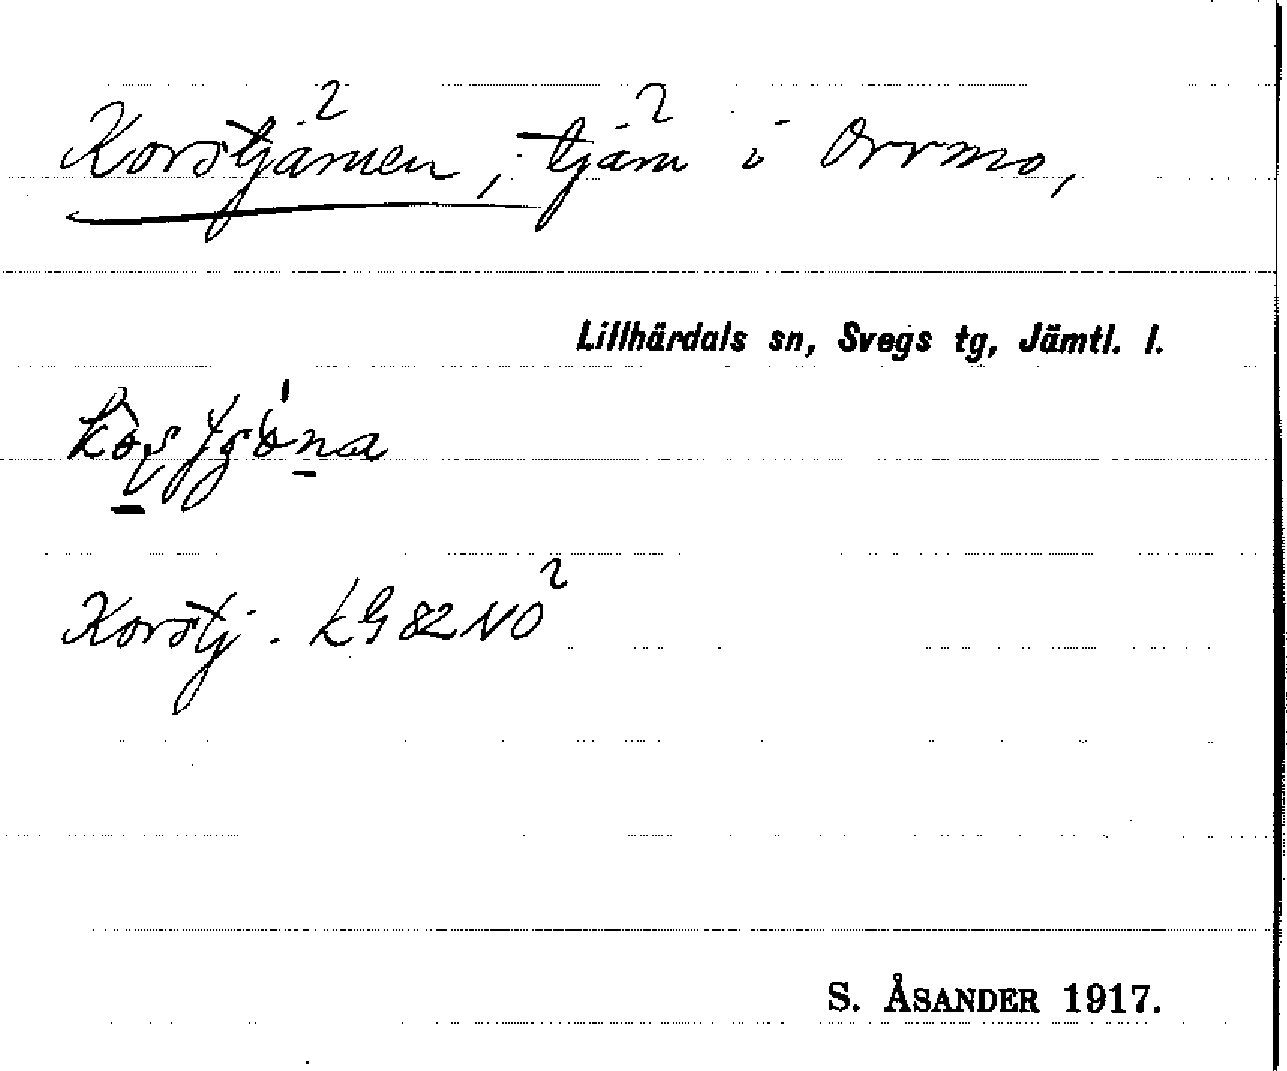 Korstjärnen, tjärn i Orrmo,
Lillhärdals sn, Svegs tg, Jämtl. l.
Korstj. LG 82 NO²
S. ÅSANDER 1917.